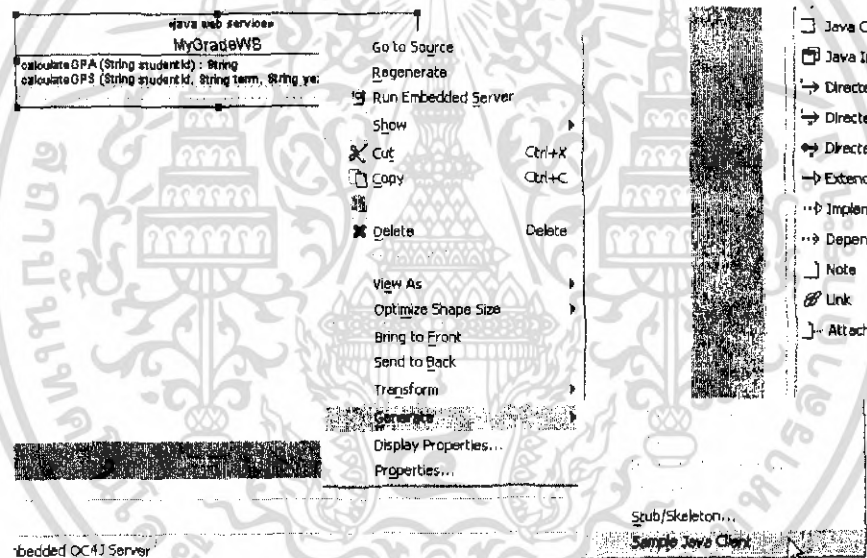 «java web service»
MyGradeWS
calculateGPA (String studentId) : String
calculateGPS (String studentId, String term, String ye
Go to Source
Regenerate
Run Embedded Server
Show
Cut Ctrl+X
Copy Ctrl+C
Delete Delete
View As
Optimize Shape Size
Bring to Front
Send to Back
Transform
Generate
Display Properties...
Properties...
Java C
Java I
Directe
Directe
Directe
Extend
Implem
Depen
Note
Link
Attach
Stub/Skeleton...
Sample Java Client
bedded OC4J Server